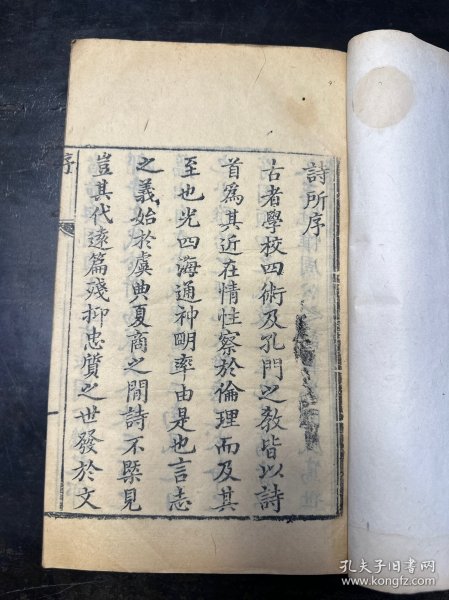 詩所序
古者學校四術及孔門之教皆以詩
首為其近在情性察於倫理而及其
至也光四海通神明率由是也言志
之義始於虞典夏商之閒詩不槩見
豈其代遠篇殘抑忠質之世發於文
序
孔夫子旧書网
www.kongfz.com